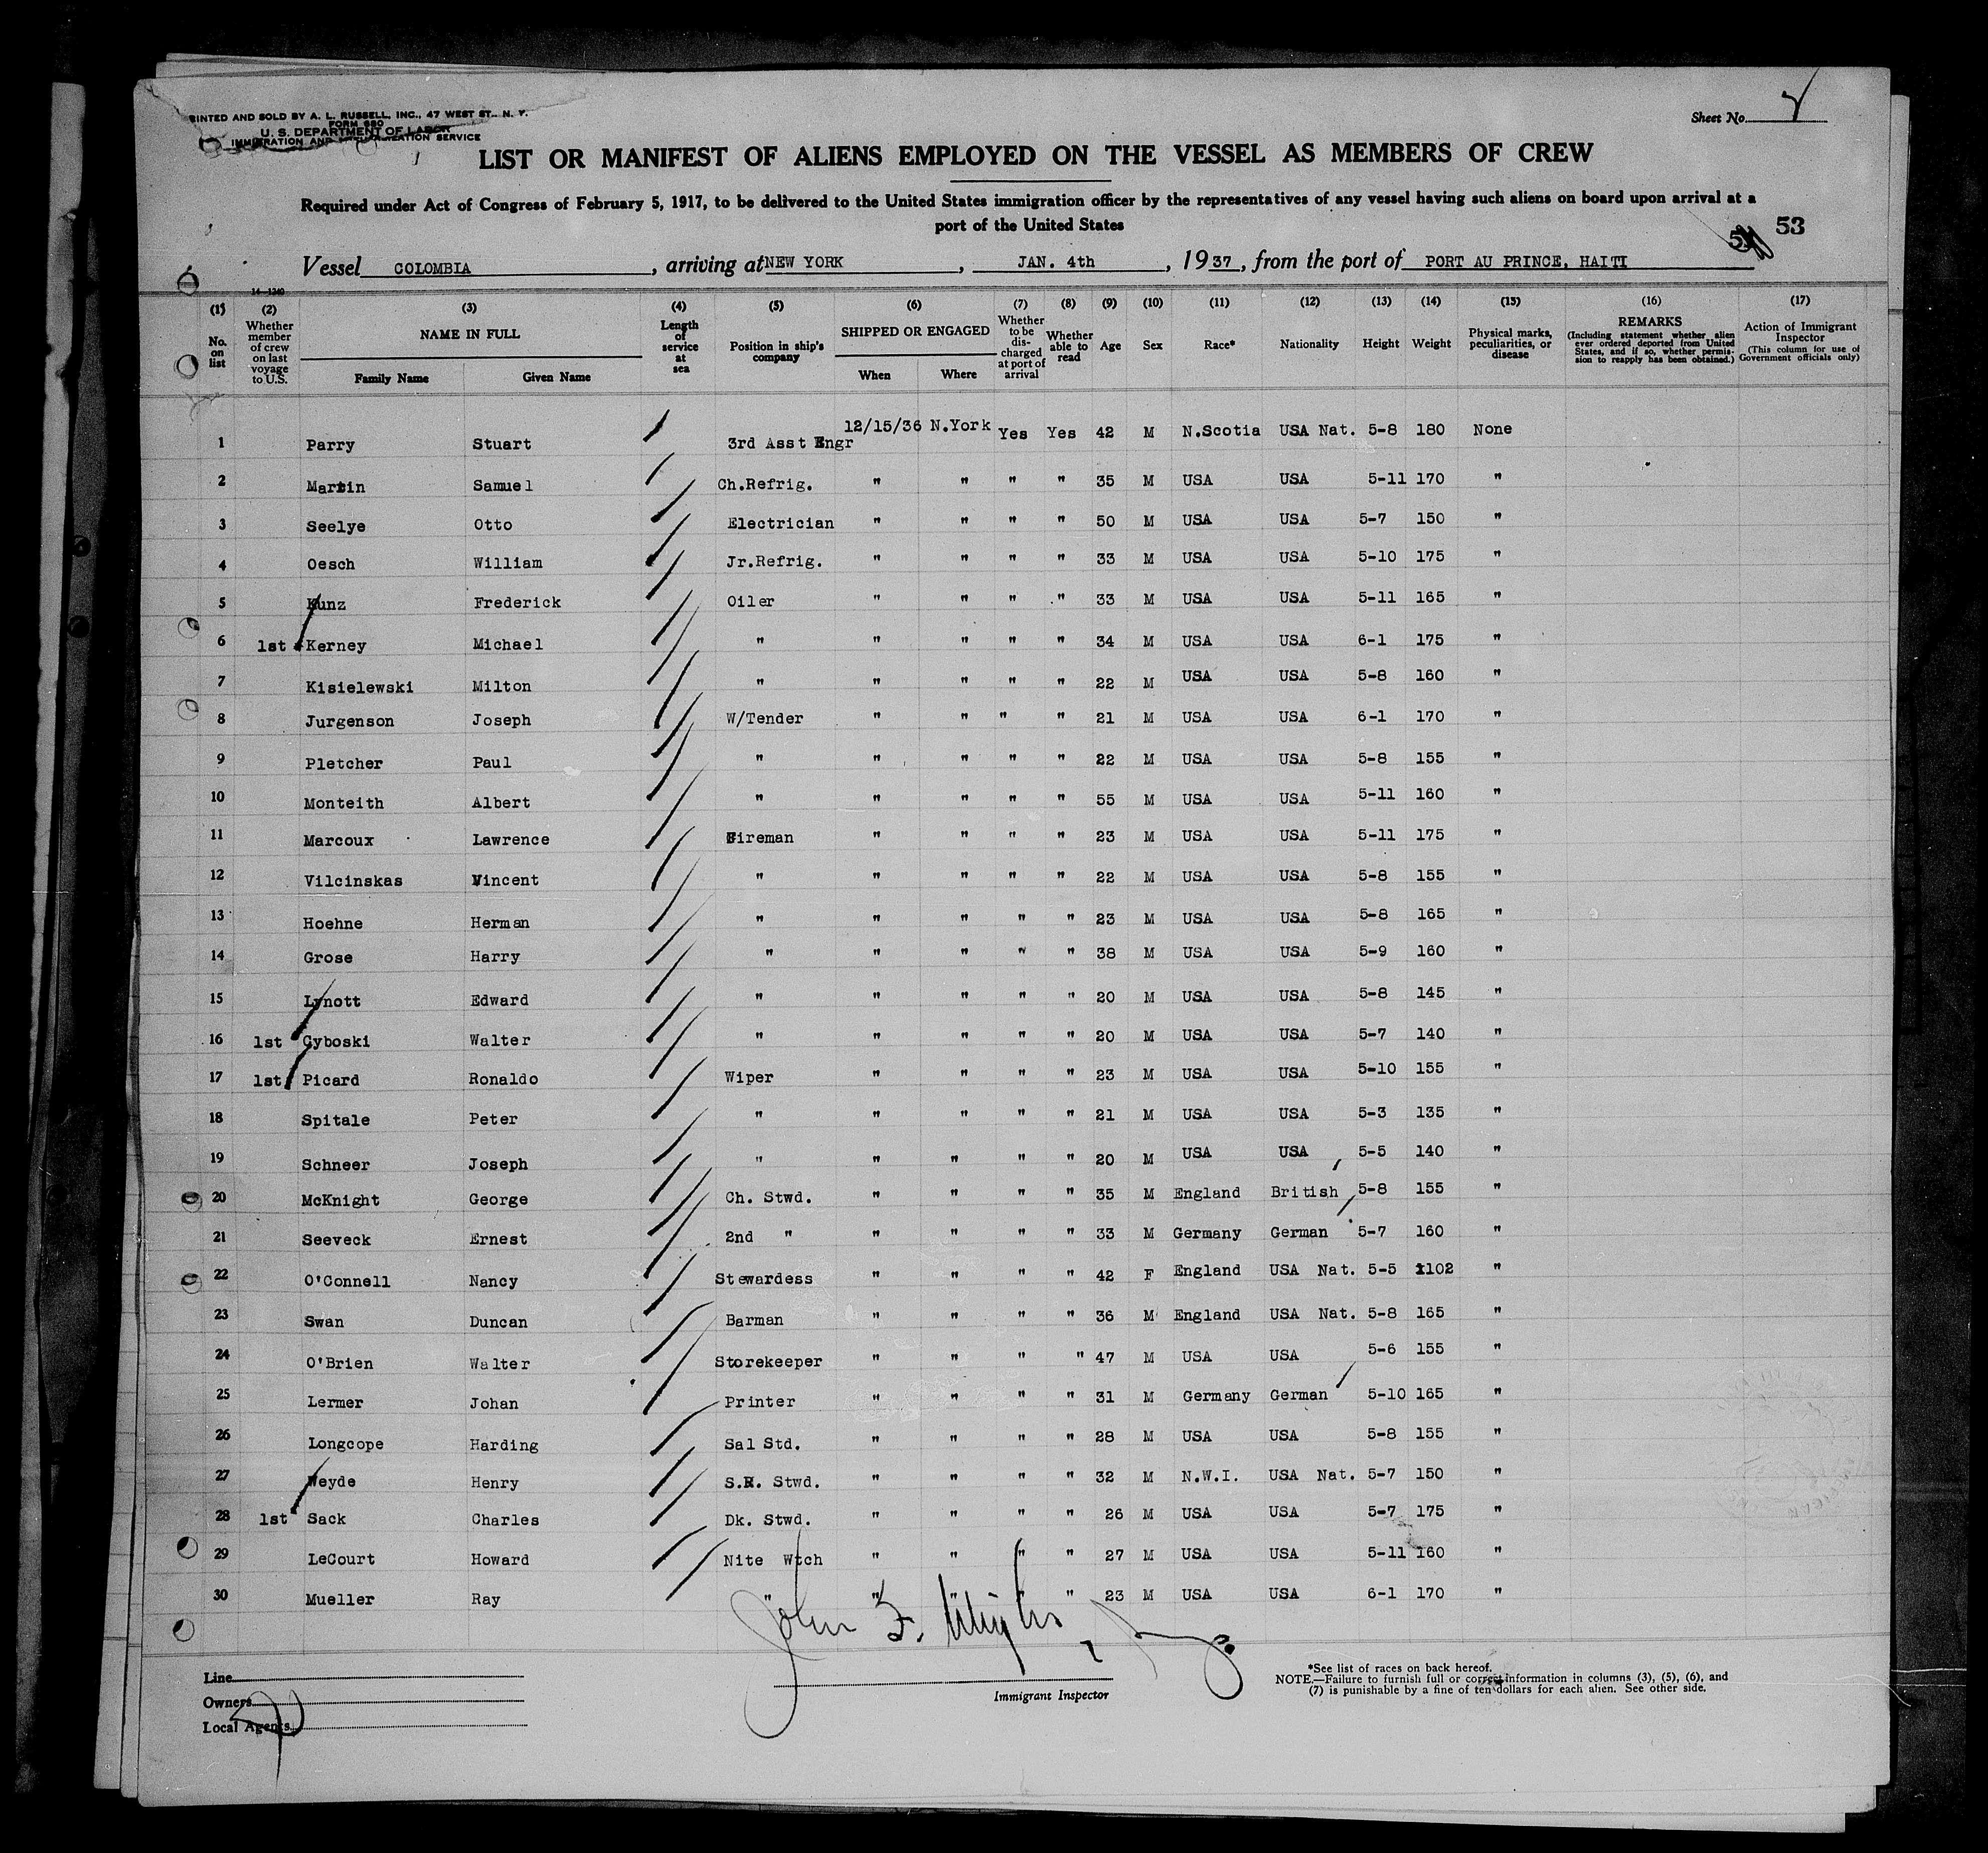 PRINTED AND SOLD BY A. L. RUSSELL, INC., 47 WEST ST., N. Y.
FORM 680
U. S. DEPARTMENT OF LABOR
IMMIGRATION AND NATURALIZATION SERVICE
Sheet No.
LIST OR MANIFEST OF ALIENS EMPLOYED ON THE VESSEL AS MEMBERS OF CREW
Required under Act of Congress of February 5, 1917, to be delivered to the United States immigration officer by the representatives of any vessel having such aliens on board upon arrival at a
port of the United States
53
Vessel COLOMBIA, arriving at NEW YORK, JAN. 4th, 1937, from the port of PORT AU PRINCE, HAITI
14-1240
(1) (2) (3) (4) (5) (6) (7) (8) (9) (10) (11) (12) (13) (14) (15) (16) (17)
No. on list | Whether member of crew on last voyage to U.S. | NAME IN FULL Family Name Given Name | Length of service at sea | Position in ship's company | SHIPPED OR ENGAGED When Where | Whether to be discharged at port of arrival | Whether able to read | Age | Sex | Race* | Nationality | Height | Weight | Physical marks, peculiarities, or disease | REMARKS (Including statement whether alien ever ordered deported from United States, and if so, whether permission to reapply has been obtained.) | Action of Immigrant Inspector (This column for use of Government officials only)
1 Parry Stuart 3rd Asst Engr 12/15/36 N.York Yes Yes 42 M N.Scotia USA Nat. 5-8 180 None
2 Martin Samuel Ch.Refrig. " " " " 35 M USA USA 5-11 170 "
3 Seelye Otto Electrician " " " " 50 M USA USA 5-7 150 "
4 Oesch William Jr.Refrig. " " " " 33 M USA USA 5-10 175 "
5 Kunz Frederick Oiler " " " " 33 M USA USA 5-11 165 "
6 1st Kerney Michael " " " " " 34 M USA USA 6-1 175 "
7 Kisielewski Milton " " " " " 22 M USA USA 5-8 160 "
8 Jurgenson Joseph W/Tender " " " " 21 M USA USA 6-1 170 "
9 Pletcher Paul " " " " " 22 M USA USA 5-8 155 "
10 Monteith Albert " " " " " 55 M USA USA 5-11 160 "
11 Marcoux Lawrence Fireman " " " " 23 M USA USA 5-11 175 "
12 Vilcinskas Vincent " " " " " 22 M USA USA 5-8 155 "
13 Hoehne Herman " " " " " 23 M USA USA 5-8 165 "
14 Grose Harry " " " " " 38 M USA USA 5-9 160 "
15 Lynott Edward " " " " " 20 M USA USA 5-8 145 "
16 1st Cyboski Walter " " " " " 20 M USA USA 5-7 140 "
17 1st Picard Ronaldo Wiper " " " " 23 M USA USA 5-10 155 "
18 Spitale Peter " " " " " 21 M USA USA 5-3 135 "
19 Schneer Joseph " " " " " 20 M USA USA 5-5 140 "
20 McKnight George Ch. Stwd. " " " " 35 M England British 5-8 155 "
21 Seeveck Ernest 2nd " " " " " 33 M Germany German 5-7 160 "
22 O'Connell Nancy Stewardess " " " " 42 F England USA Nat. 5-5 102 "
23 Swan Duncan Barman " " " " 36 M England USA Nat. 5-8 165 "
24 O'Brien Walter Storekeeper " " " " 47 M USA USA 5-6 155 "
25 Lermer Johan Printer " " " " 31 M Germany German 5-10 165 "
26 Longcope Harding Sal Std. " " " " 28 M USA USA 5-8 155 "
27 Weyde Henry S.R. Stwd. " " " " 32 M N.W.I. USA Nat. 5-7 150 "
28 1st Sack Charles Dk. Stwd. " " " " 26 M USA USA 5-7 175 "
29 LeCourt Howard Nite Wtch " " " " 27 M USA USA 5-11 160 "
30 Mueller Ray " " " " " 23 M USA USA 6-1 170 "
John F.
Line
Owners
Local Agents
Immigrant Inspector
*See list of races on back hereof.
NOTE.—Failure to furnish full or correct information in columns (3), (5), (6), and
(7) is punishable by a fine of ten dollars for each alien. See other side.